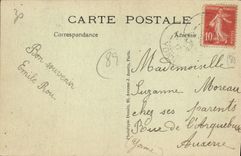 CARTE POSTALE
Correspondance
Adresse
Bon souvenir
Emile Rou
89
10
Mademoiselle
Suzanne Moreau
chez ses parents
Rue de l'Arquebuse
Auxerre
Yonne